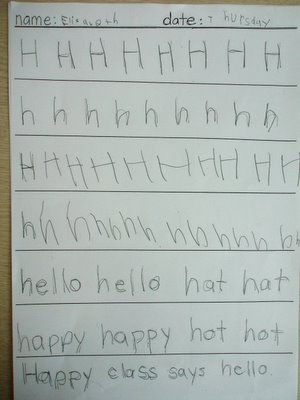 name: Elisaveth date: Thursday
H H H H H H H H
h h h h h h h h h
H H H H H H H H H H
h h h h h h h h h h h h h
hello hello hat hat
happy happy hot hot
Happy class says hello.